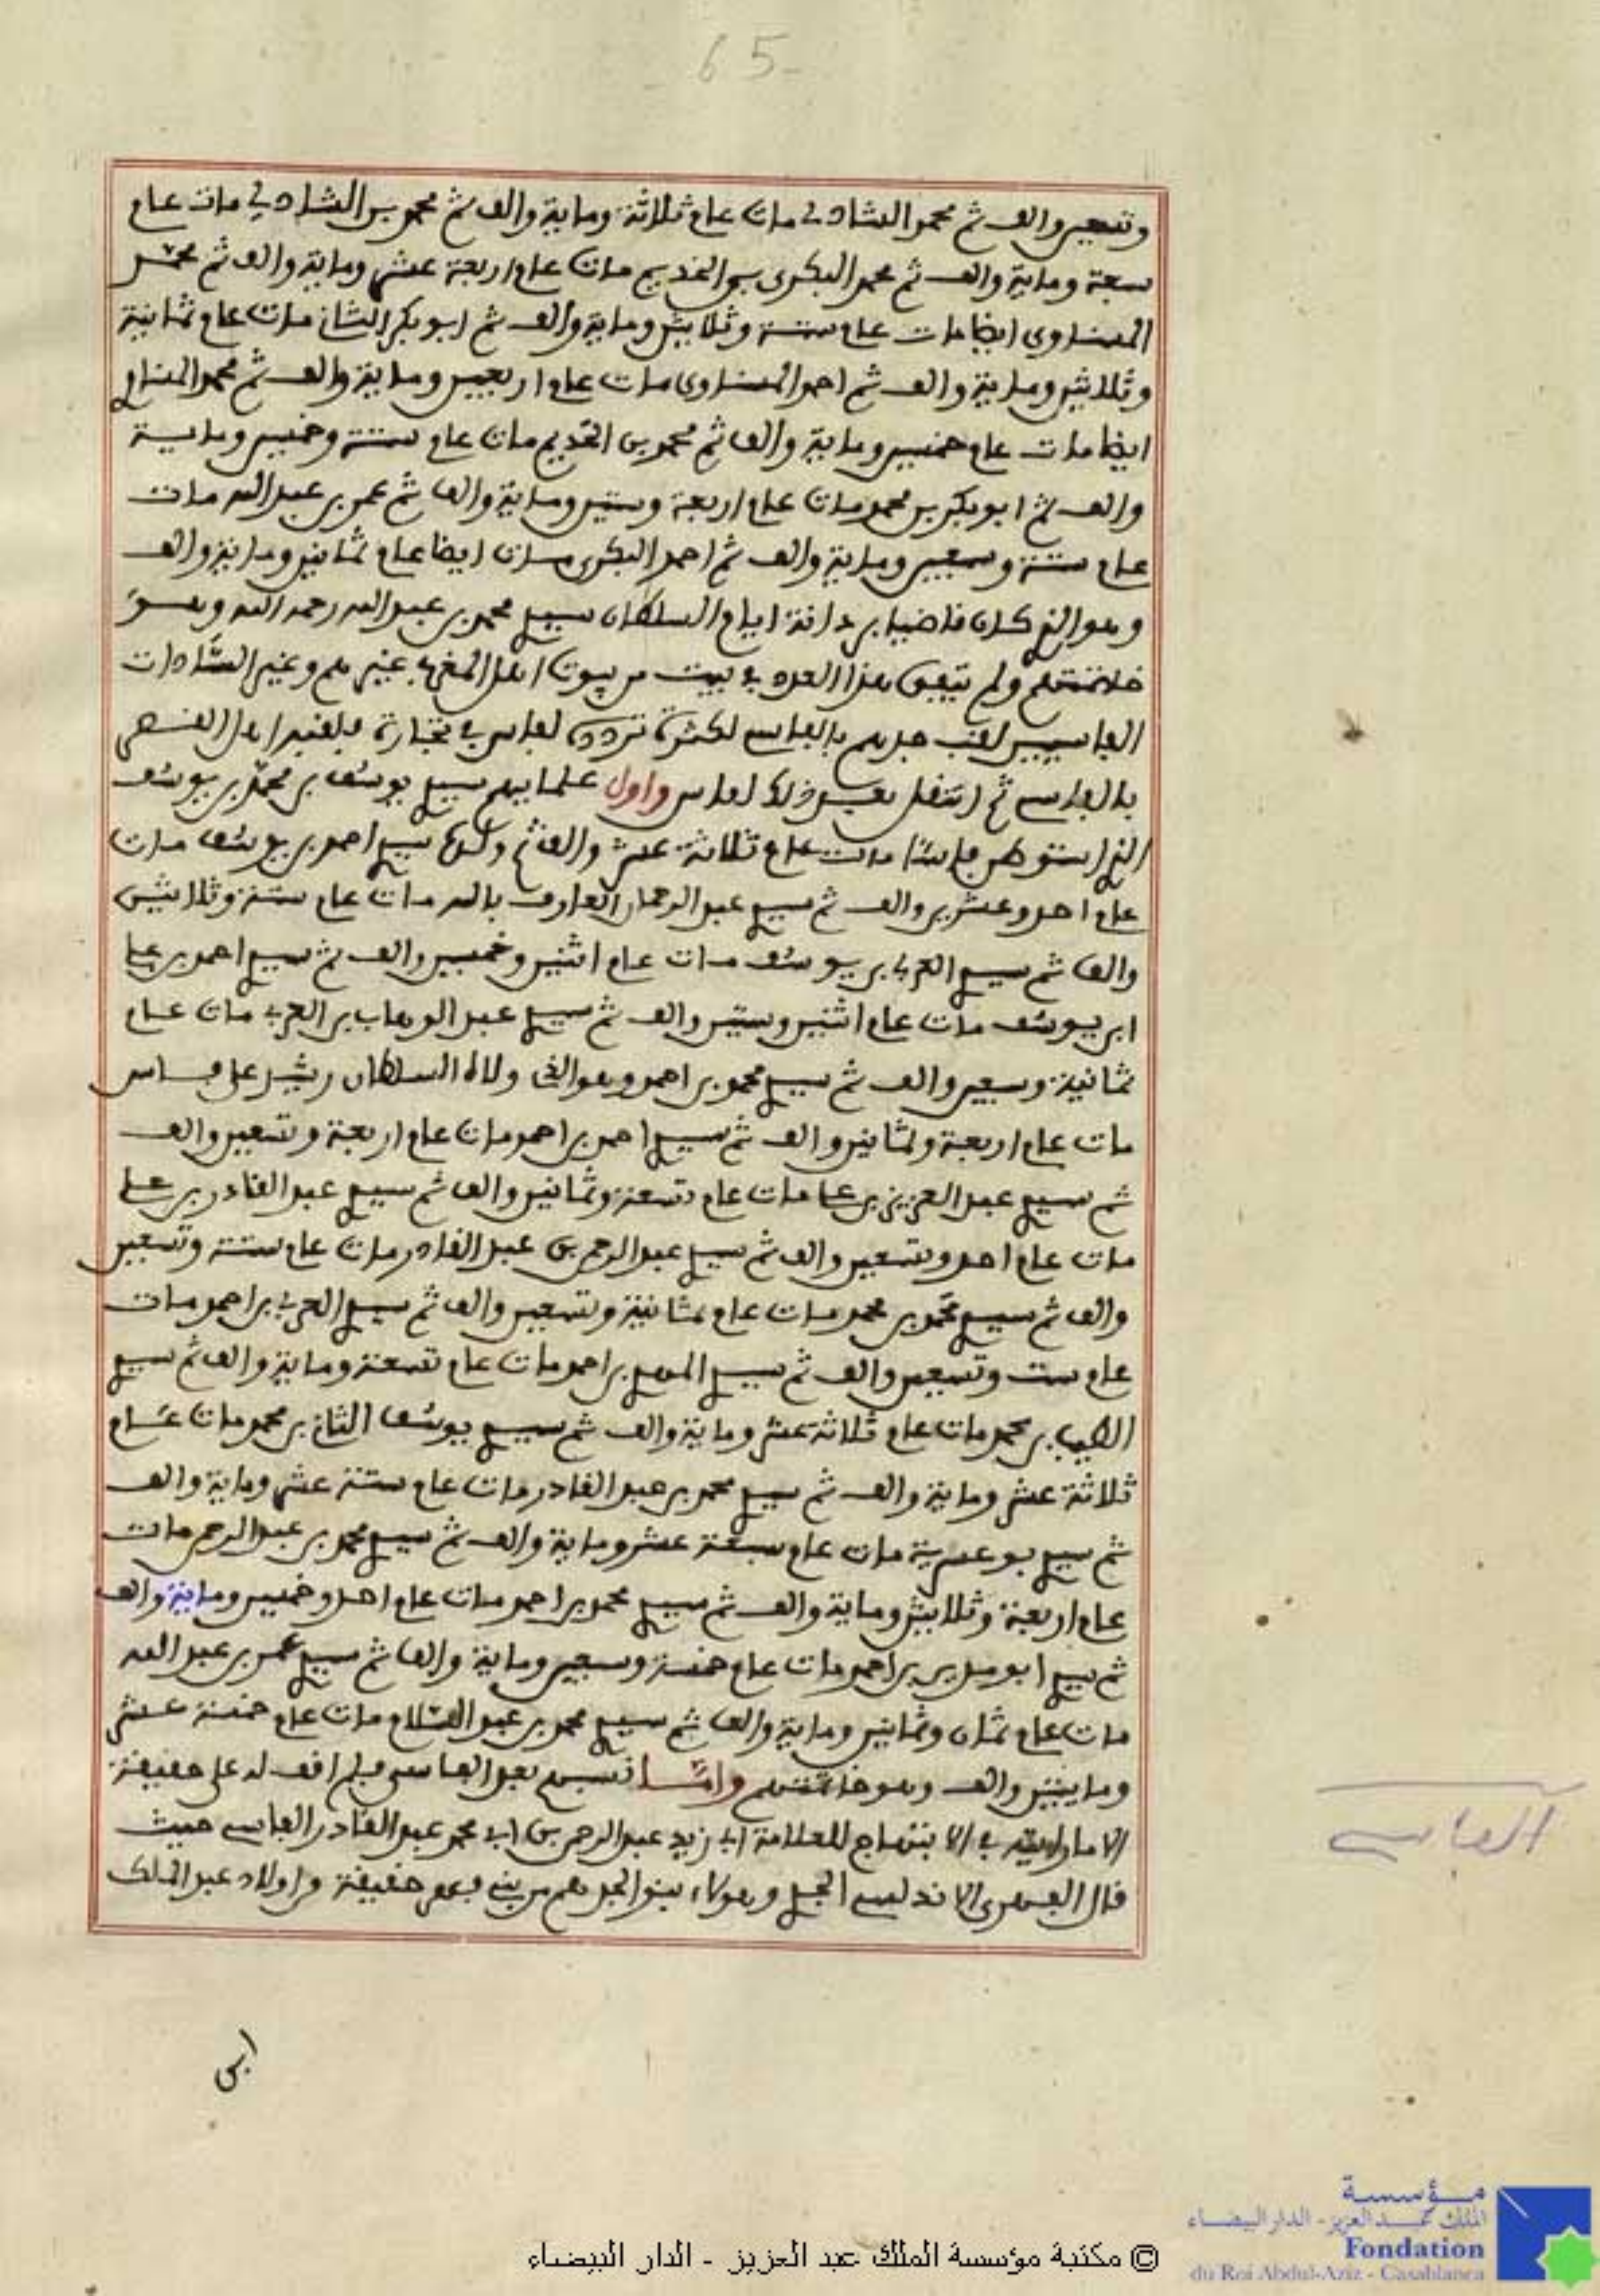 65
وتسعين والف ثم محمد الشاذلي مات عام ثلاثة وماية والف ثم محمد بن الشاذلي مات عام
سبعة وماية والف ثم محمد البكري بن الخديم مات عام اربعة عشر وماية والف ثم محمد
المسناوي ايضا مات عام ستة وثلاثين وماية والف ثم ابو بكر الشاذ مات عام ثمانية
وثلاثين وماية والف ثم احمد المسناوي مات عام اربعين وماية والف ثم محمد
ايضا مات عام خمسين وماية والف ثم محمد بن الخديم مات عام ستة وخمسين وماية
والف ثم ابو بكر بن محمد مات عام اربعة وستين وماية والف ثم عمر بن عبد الله مات
عام ستة وسبعين وماية والف ثم احمد البكري مات ايضا عام ثمانين وماية والف
وهو الذي كان قاضيا ايام السلطان سيدي محمد بن عبد الله رحمه الله وهو
خاتمتهم ولم يتفق هذا العدد في بيت من بيوت اهل المغرب غيرهم وغير السادات
الفاسيين لقب جدهم بالفاسي لكثرة تردده لفاس في تجارة فلقبه اهل القصر
بالفاسي ثم انتقل بعد ذلك لفاس واول علمايهم سيدي يوسف بن محمد بن يوسف
الذي استوطن فاسا مات عام ثلاثة عشر والف ثم ولده سيدي احمد بن يوسف مات
عام احد وعشرين والف ثم سيدي عبد الرحمان العارف بالله مات عام ستة وثلاثين
والف ثم سيدي العربي بن يوسف مات عام اثنين وخمسين والف ثم سيدي احمد بن علي
ابن يوسف مات عام اثنين وستين والف ثم سيدي عبد الوهاب بن العربي مات عام
ثمانية وسبعين والف ثم سيدي محمد بن احمد وهو الذي ولاه السلطان رشيد على فاس
مات عام اربعة وثمانين والف ثم سيدي احمد بن احمد مات عام اربعة وتسعين والف
ثم سيدي عبد العزيز بن علي مات عام تسعة وثمانين والف ثم سيدي عبد القادر بن علي
مات عام احد وتسعين والف ثم سيدي عبد الرحمن بن عبد القادر مات عام ستة وتسعين
والف ثم سيدي محمد بن محمد مات عام ثمانية وتسعين والف ثم سيدي العربي بن احمد مات
عام ست وتسعين والف ثم سيدي المهدي بن احمد مات عام تسعة وماية والف ثم سيدي
الطيب بن محمد مات عام ثلاثة عشر وماية والف ثم سيدي يوسف الثاني بن محمد مات عام
ثلاثة عشر وماية والف ثم سيدي محمد بن عبد القادر مات عام ستة عشر وماية والف
ثم سيدي بو عسرية مات عام سبعة عشر وماية والف ثم سيدي محمد بن عبد الرحمن مات
عام اربعة وثلاثين وماية والف ثم سيدي محمد بن احمد مات عام احد وخمسين وماية والف
ثم سيدي ابو مدين بن احمد مات عام خمسة وسبعين وماية والف ثم سيدي عمر بن عبد الله
مات عام ثمان وثمانين وماية والف ثم سيدي محمد بن عبد السلام مات عام خمسة عشر
ومايتين والف وهو خاتمتهم واما نسبهم بعد الفاسي فلم اقف له على حقيقة
الا ما رايته في الابتهاج للعلامة ابي زيد عبد الرحمن بن ابي محمد عبد القادر الفاسي حيث
قال الفهري الاندلسي الجدي وهولاء بنو الجد هم من بني فهر حقيقة من اولاد عبد الملك
الفاسي
ابن
© مكتبة مؤسسة الملك عبد العزيز - الدار البيضاء
مؤسسة
الملك عبد العزيز - الدار البيضاء
Fondation
du Roi Abdul-Aziz - Casablanca